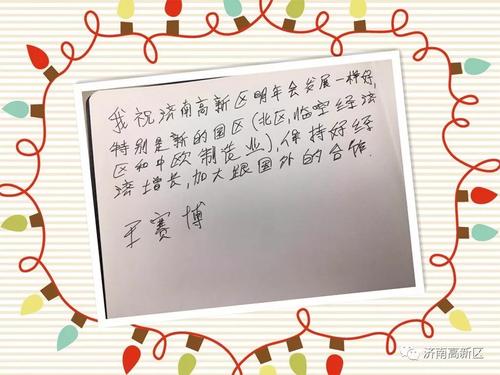 我祝济南高新区明年会发展一样好,
特别是新的国区(北区,临空经济
区和中欧制造业),保持好经
济增长,加大跟国外的合作.
王赛博
济南高新区